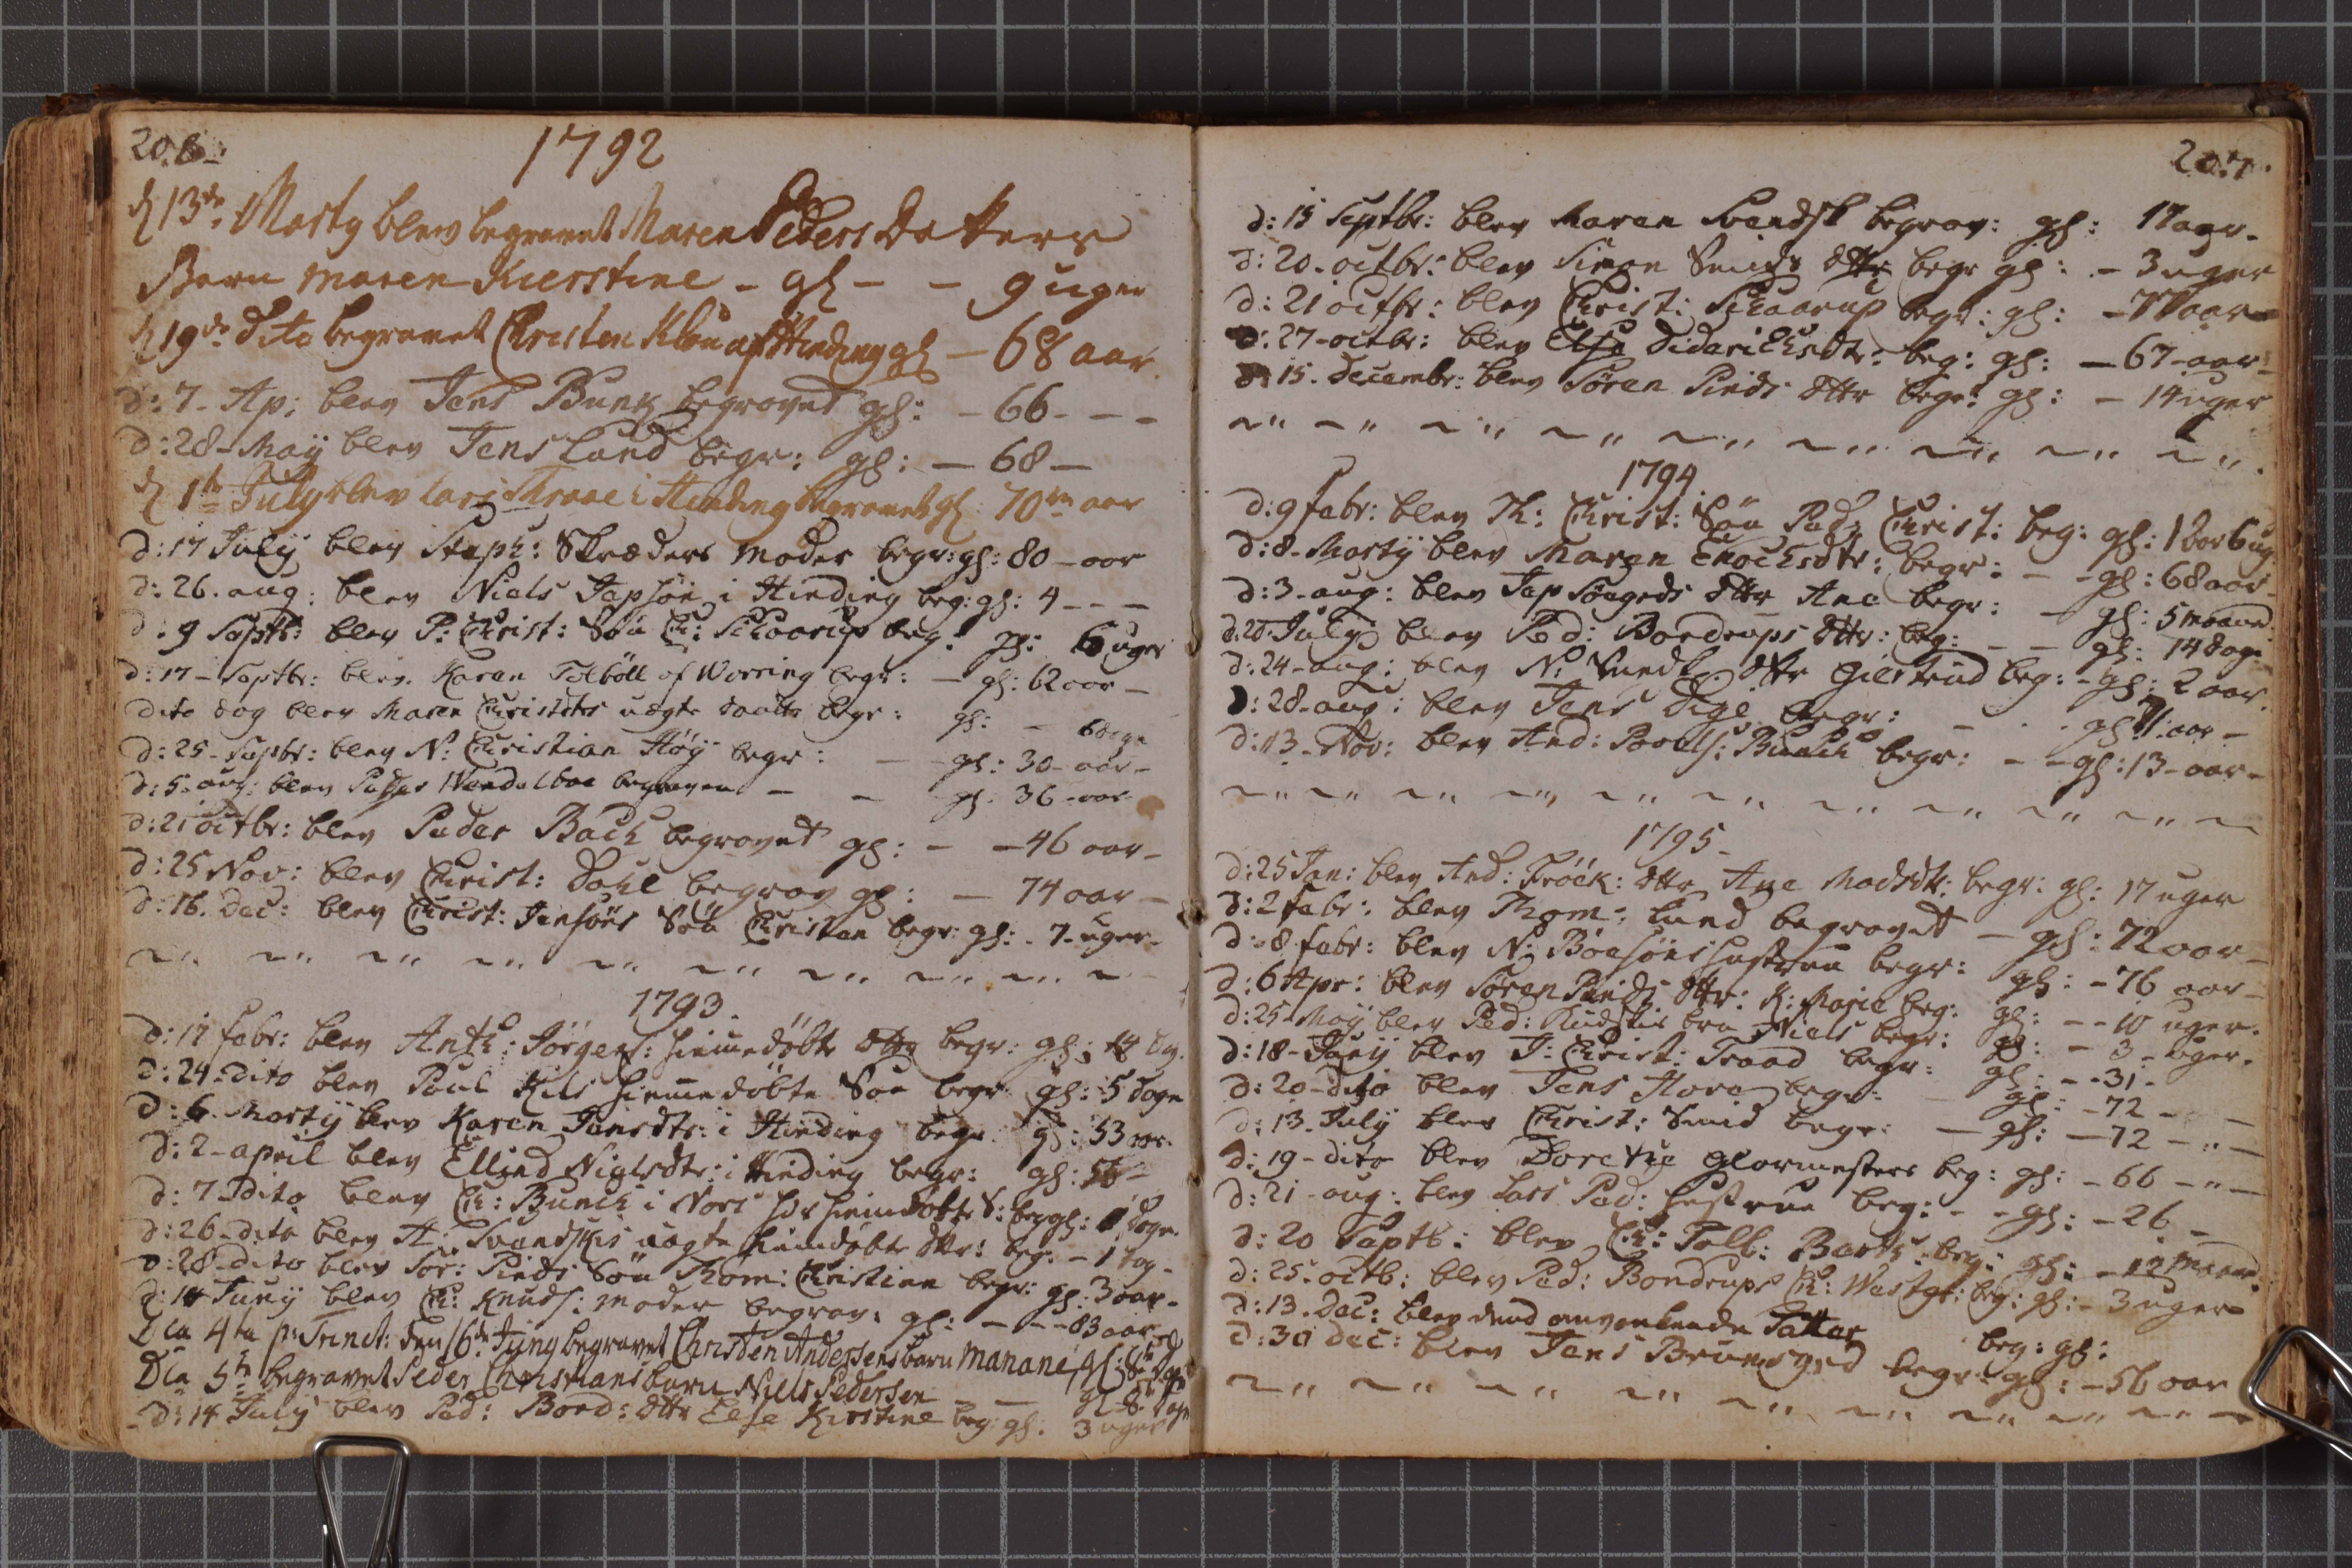 206
1792
d 13de Marty blev begravet Maren Peders Datters
Barn Maren Kierstine - gl - - 9 uger
d 19de dito begravet Christen Klou af Hinding gl - 68 aar
d: 7 - Ap: blev Jens Bunk begravet gl: - 66 - - -
d: 28 - Maÿ blev Jens Lund begr: gl: - 68 -
d 1te July blev Lars Thrane i Hinding begravet gl 70 aar
d: 17 Julÿ blev Steph: Skræders Moder begr: gl: 80 - aar
d: 26. aug: blev Niels Jepsön i Hinding beg: gl: 4 - - -
d: 9 Septb: blev P: Christ: Sön Ch: Schaarup beg. gl: 6 uger
d: 17 - Septbr: blev Karen Tolböll af Worring begr: - gl: 62 aar -
dito dag blev Maren Christdtrs uægte daatter begr: gl: - 6 dage
d: 25 - Sepbr: blev N: Christian Höÿ begr: - gl: 30 - aar -
d: 5 - aug: blev Wendelboe begraven - - gl: 36 - aar
d: 21 octbr: blev Peder Bach begravet gl: - - 46 aar -
d: 25 Nov: blev Christ: Dahl begrav gl: - 74 aar -
d: 16. Dec: blev Christ: Jensöns Sön Christen begr: gl: - 7 - uger -
1793.
d: 17 febr: blev Anth: Jörgens: hiemmedöbte dttr begr: gl: 14 d.
d: 24 - dito blev Poul Kils hiemmedöbte Sön begr gl: 5 dage
d: 6. Martÿ blev Karen Jensdtr: i Hinding begr. gl: 53 aar.
d: 2 - april blev Ellind Nielsdtr: i Hinding begr: gl: 56 -
d: 7 - dito blev Ch: Bunch i Nors hiemdöbte S: beg gl: 1 dage.
d: 26 - dito blev A: Svendskis uægte hiemdöbte dtr: beg: - 1 dag -
d: 28 - dito blev Sör: Pinds Sön Thom: Christian begr: gl: 3 aar -
d: 14 Junÿ blev Ch: Knuds: moder begrav: gl: - - - 83 aar
Dca 4ta p: Trinit: den 16de Juny begravet Christen Andersens barn Manane, gl: 8te dage
Dca 5te begravet Peder Christians barn Niels Pedersen - - gl 8 dage
d: 14 Julÿ blev Ped: Bond: dttr Else Kirstine beg: gl: 3 uger
207
d: 15 Septbr: blev Maren Svendsk begrav: gl: 17 aar -
d: 20. octbr: blev Simon Smids dttr begr gl: - 3 uger
d: 21 octbr: blev Christ: Schaarup begr: gl: - 77 aar -
d: 27 - octbr: blev Else Didarichsdtr: beg: gl: - 67 - aar -
d: 15. Decembr: blev Sören Pinds dttr begr: gl: - 14 uger
1794
d: 9 febr: blev Th: Christ: Sön Ped: Christ: beg: gl: 1 aar 6 ug.
d: 8 - Martÿ blev Maren Enochsdtr: begr: - - gl: 68 aar -
d: 3 - aug: blev Jep Söegrds dttr Ane begr: - gl: 5 maaned.
d: 20 - Julÿ blev Ped: Bondrups dttr: beg: - - gl: 14 dage
d: 24 - aug: blev N: Smeds dttr Giertrud beg: - gl: 2 aar.
d: 28 - aug: blev Jens Dige begr: - - - gl: 71 - aar -
d: 13 - Nov: blev And: Pouls: Bunch begr: - - gl: 13 - aar -
1795 -
d: 25 Jan: blev And: Fröck: dttr Ane Madsdtr: begr: gl: 17 uger
d: 2 febr: blev Thom: Lund begravet - gl: 72 aar -
d: 8 febr: blev N: Böesöns hustrue begr: gl: - 76 aar -
d: 6 Apr: blev Sören Pinds dttr: K: Marie beg: gl: - - 10 uger.
d: 25 Maÿ blev Ped: Niels begr: gl: - 3 - uger.
d: 18 - Junÿ blev J: Christ: Traad begr: gl: - - 31 -
d: 20 - dito blev Jens Hove begr: - gl: - 72 - -
d: 13. Julÿ blev Christ: Smid begr: - gl: - 72 - " -
d: 19 - dito blev Doretie Glarmesters beg: gl: - 66 - " -
d: 21 - aug: blev Lars Ped: hustrue beg: - - gl: - 26 -
d: 20 Septb: blev Ch: Tolb: beg: gl: - 12 maan.
d: 25. octb: blev Ped: Bondrups Ch: beg: gl: - 3 uger
d: 13. Dec: blev dend omvankende Tatter beg: gl:
d: 30 Dec: blev Jens Brunsgrd begr: gl: - 56 aar